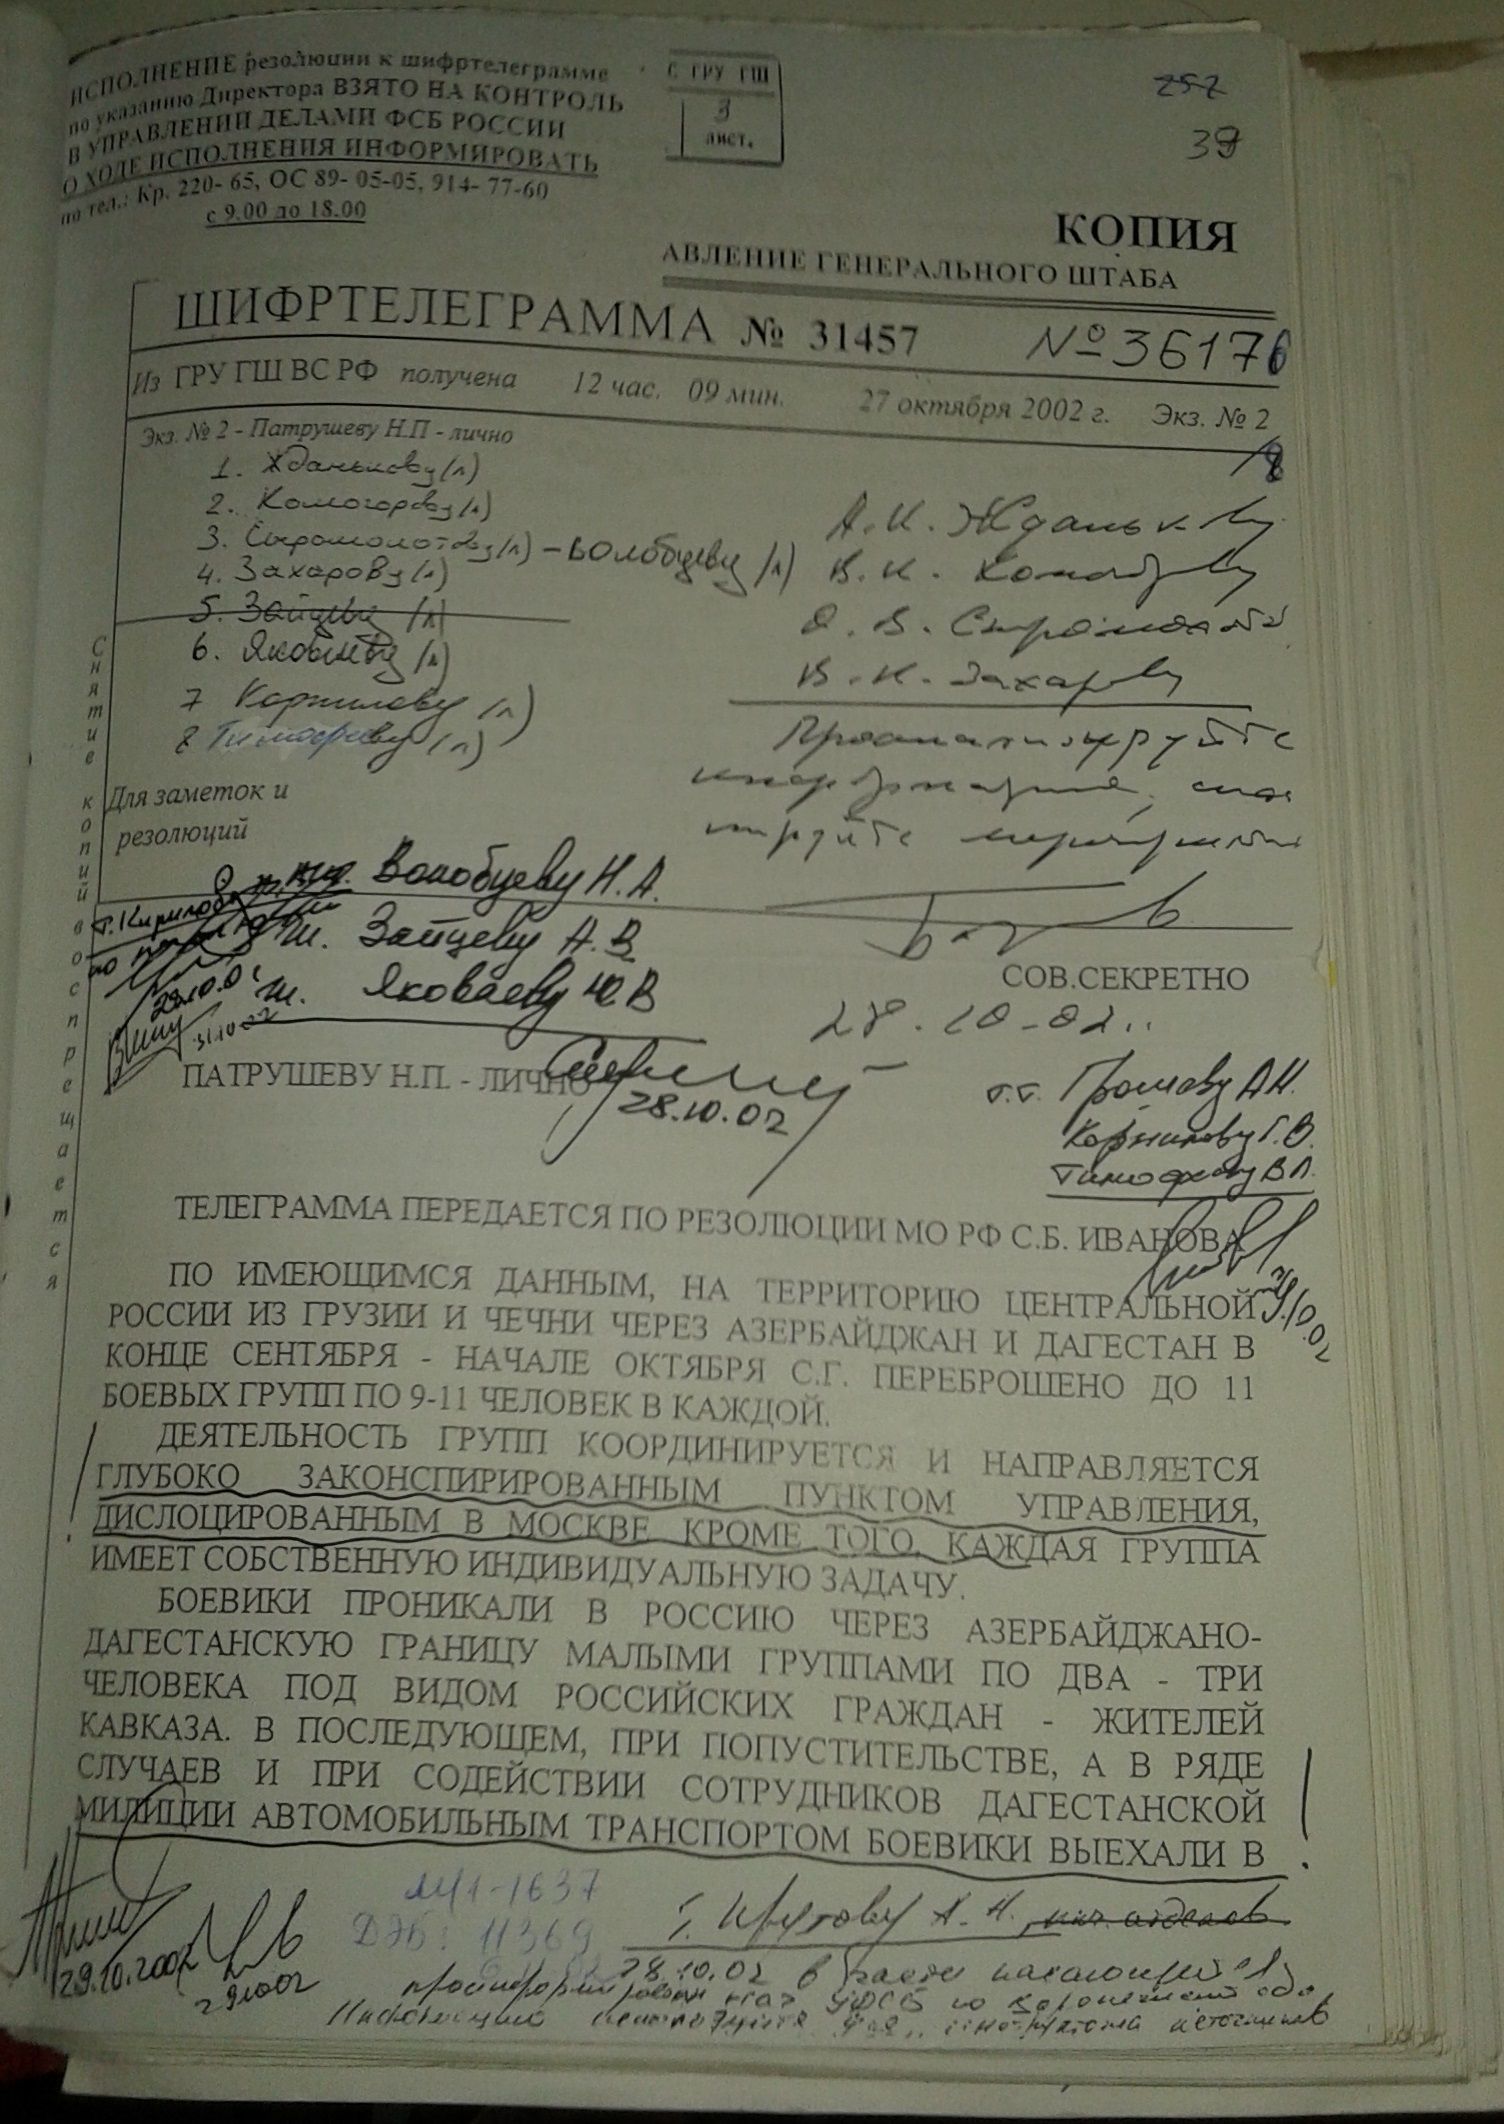 ИСПОЛНЕНИЕ резолюции к шифртелеграмме
по указанию Директора ВЗЯТО НА КОНТРОЛЬ
В УПРАВЛЕНИИ ДЕЛАМИ ФСБ РОССИИ
О ХОДЕ ИСПОЛНЕНИЯ ИНФОРМИРОВАТЬ
по тел.: Кр. 220- 65, ОС 89- 05-05, 914- 77-60
с 9.00 до 18.00
С ГРУ ГШ
3
лист.
257
39
КОПИЯ
АВЛЕНИЕ ГЕНЕРАЛЬНОГО ШТАБА
ШИФРТЕЛЕГРАММА № 31457 № 36176
Из ГРУ ГШ ВС РФ получена 12 час. 09 мин. 27 октября 2002 г. Экз. № 2
Экз. № 2 - Патрушеву Н.П - лично
1. Жданькову (л)
2. Комогорову (л)
3. Сыромолотову (л) - Волобуеву (л)
4. Захарову (л)
5. Зайцеву (л)
6. Яковлеву (л)
7 Корнилову (л)
8 Тимофееву (л)
А.И. Жданькову
В.И. Комогорову
О.В. Сыромолотову
В.И. Захарову
Проанализируйте
информацию,
мероприятия
Снятие копий воспрещается
Для заметок и
резолюций
Волобуеву Н.А.
т. Зайцеву А.В
т. Яковлеву Ю.В
29.10.02
31.10.02
СОВ.СЕКРЕТНО
28.10.02
ПАТРУШЕВУ Н.П. - ЛИЧНО
28.10.02
т.т. Громову А.Н.
Корнилову Г.В.
Тимофееву В.Л.
ТЕЛЕГРАММА ПЕРЕДАЕТСЯ ПО РЕЗОЛЮЦИИ МО РФ С.Б. ИВАНОВА
ПО ИМЕЮЩИМСЯ ДАННЫМ, НА ТЕРРИТОРИЮ ЦЕНТРАЛЬНОЙ
РОССИИ ИЗ ГРУЗИИ И ЧЕЧНИ ЧЕРЕЗ АЗЕРБАЙДЖАН И ДАГЕСТАН В
КОНЦЕ СЕНТЯБРЯ - НАЧАЛЕ ОКТЯБРЯ С.Г. ПЕРЕБРОШЕНО ДО 11
БОЕВЫХ ГРУПП ПО 9-11 ЧЕЛОВЕК В КАЖДОЙ.
ДЕЯТЕЛЬНОСТЬ ГРУПП КООРДИНИРУЕТСЯ И НАПРАВЛЯЕТСЯ
ГЛУБОКО ЗАКОНСПИРИРОВАННЫМ ПУНКТОМ УПРАВЛЕНИЯ,
ДИСЛОЦИРОВАННЫМ В МОСКВЕ. КРОМЕ ТОГО, КАЖДАЯ ГРУППА
ИМЕЕТ СОБСТВЕННУЮ ИНДИВИДУАЛЬНУЮ ЗАДАЧУ.
БОЕВИКИ ПРОНИКАЛИ В РОССИЮ ЧЕРЕЗ АЗЕРБАЙДЖАНО-
ДАГЕСТАНСКУЮ ГРАНИЦУ МАЛЫМИ ГРУППАМИ ПО ДВА - ТРИ
ЧЕЛОВЕКА ПОД ВИДОМ РОССИЙСКИХ ГРАЖДАН - ЖИТЕЛЕЙ
КАВКАЗА. В ПОСЛЕДУЮЩЕМ, ПРИ ПОПУСТИТЕЛЬСТВЕ, А В РЯДЕ
СЛУЧАЕВ И ПРИ СОДЕЙСТВИИ СОТРУДНИКОВ ДАГЕСТАНСКОЙ
МИЛИЦИИ АВТОМОБИЛЬНЫМ ТРАНСПОРТОМ БОЕВИКИ ВЫЕХАЛИ В
29.10.2002
291002
1-1637
ДЭБ: 11369
т. Круглову А.Н.
28.10.02 в части касающейся
проинформирован УФСБ по Воронежской обл.